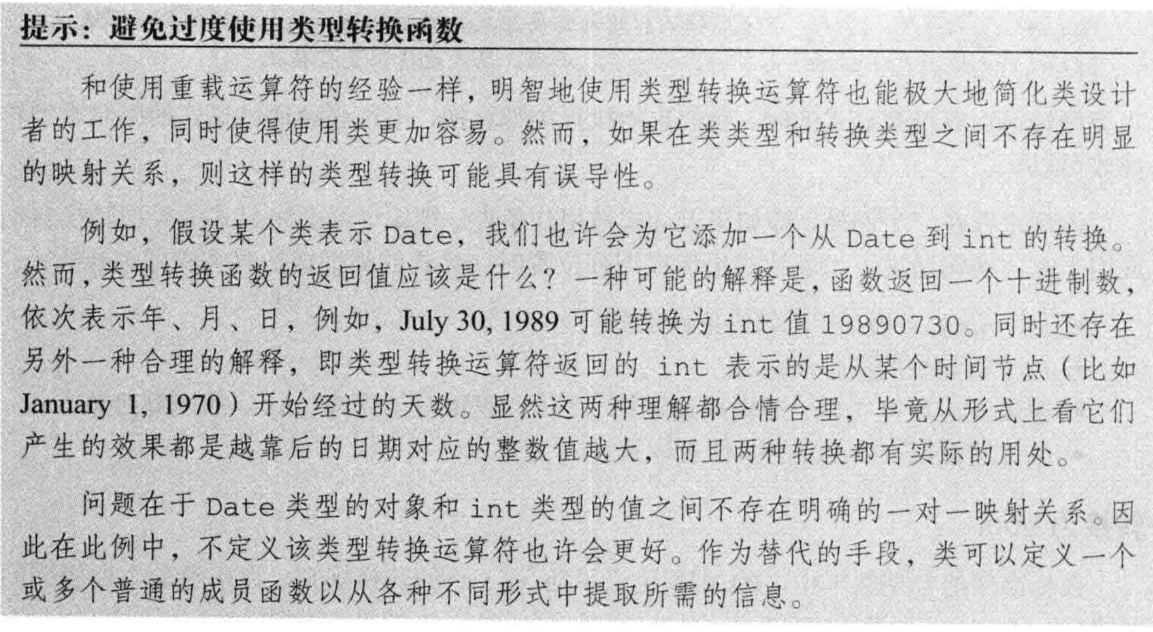 提示：避免过度使用类型转换函数
和使用重载运算符的经验一样，明智地使用类型转换运算符也能极大地简化类设计
者的工作，同时使得使用类更加容易。然而，如果在类类型和转换类型之间不存在明显
的映射关系，则这样的类型转换可能具有误导性。
例如，假设某个类表示 Date，我们也许会为它添加一个从 Date 到 int 的转换。
然而，类型转换函数的返回值应该是什么？一种可能的解释是，函数返回一个十进制数，
依次表示年、月、日，例如，July 30, 1989 可能转换为 int 值 19890730。同时还存在
另外一种合理的解释，即类型转换运算符返回的 int 表示的是从某个时间节点（比如
January 1, 1970）开始经过的天数。显然这两种理解都合情合理，毕竟从形式上看它们
产生的效果都是越靠后的日期对应的整数值越大，而且两种转换都有实际的用处。
问题在于 Date 类型的对象和 int 类型的值之间不存在明确的一对一映射关系。因
此在此例中，不定义该类型转换运算符也许会更好。作为替代的手段，类可以定义一个
或多个普通的成员函数以从各种不同形式中提取所需的信息。